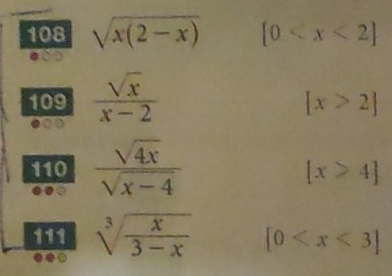 108 √x(2 − x) [0 < x < 2]
109 √x / x − 2 [x > 2]
110 √4x / √x − 4 [x > 4]
111 ∛x / 3 − x [0 < x < 3]